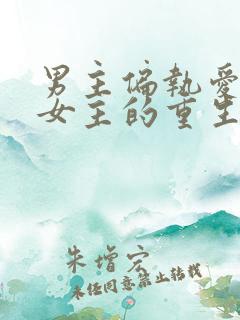 男主偏執愛
女主的重生
朱增宏
未经同意禁止转载